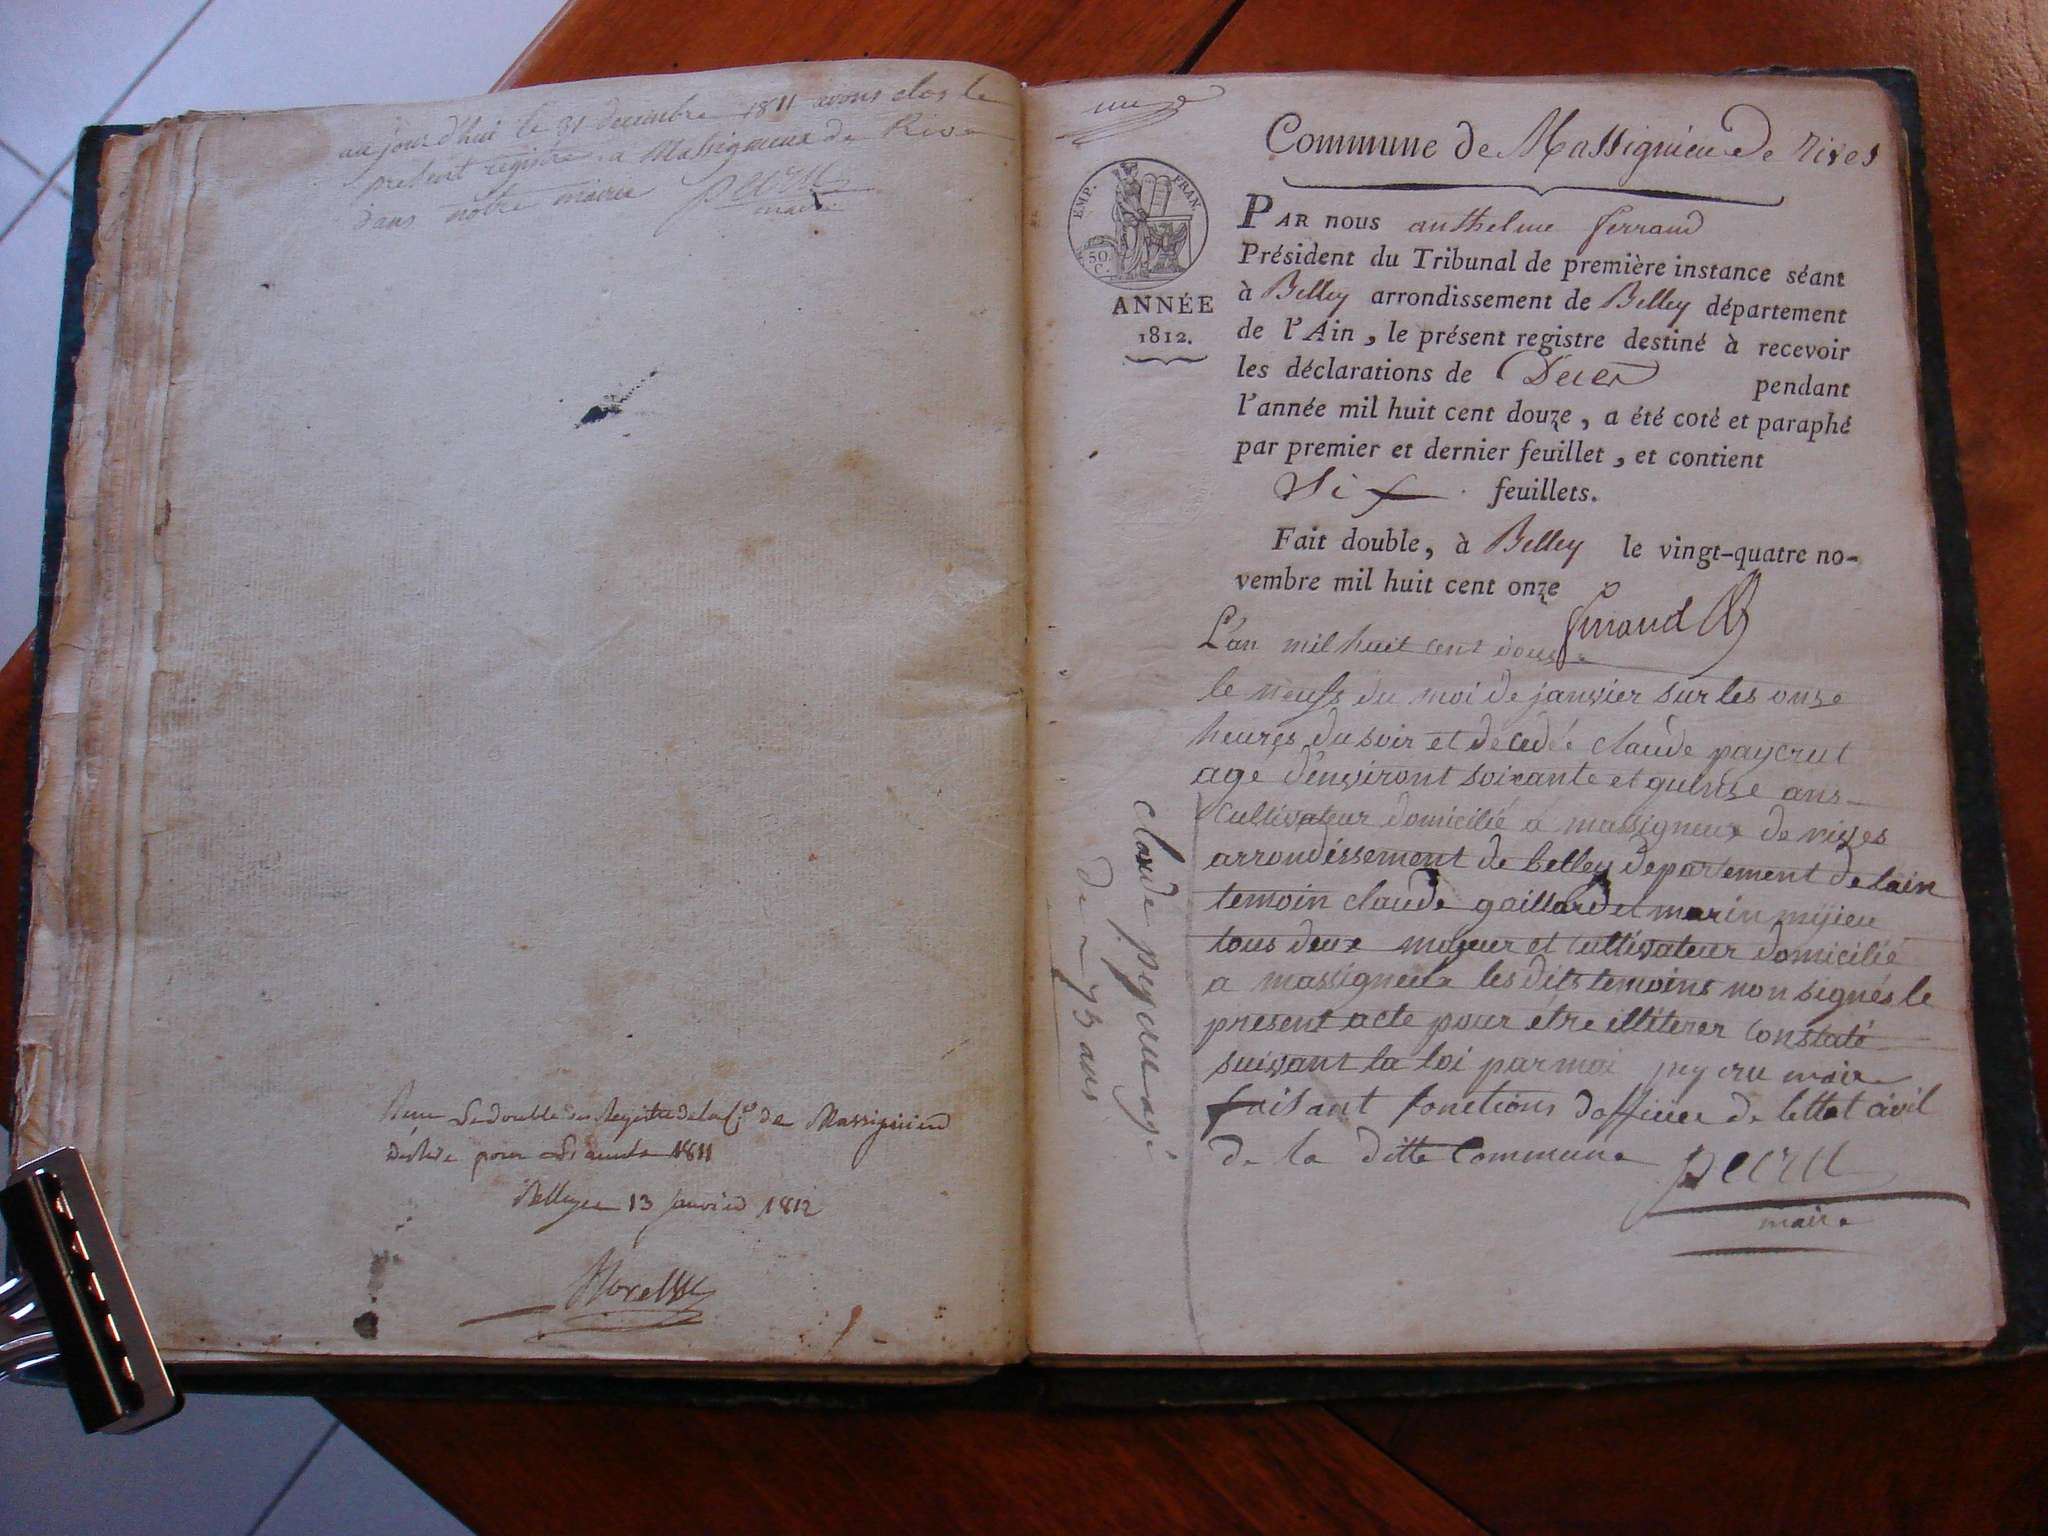 aujourd'hui le 31 decembre 1811 avons clos le
present registre a Massigneux de Rive
dans notre mairie pecru
maire
Le double du Registre de la Co de Massignieud
derive pour L'année 1811
Belley le 13 janvier 1812
Morelle
une
Commune de Massignieu de Rives
EMP. FRAN.
50. C.
ANNÉE
1812.
PAR NOUS anthelme ferrand
Président du Tribunal de première instance séant
à Belley arrondissement de Belley département
de l'Ain, le présent registre destiné à recevoir
les déclarations de Deces pendant
l'année mil huit cent douze, a été coté et paraphé
par premier et dernier feuillet, et contient
Six feuillets.
Fait double, à Belley le vingt-quatre no-
vembre mil huit cent onze
ferraud
L'an mil huit cent douse
le neufs du moi de janvier sur les onze
heures du soir et decedée claude paycrut
agé d'environt soixante et quinse ans
Cultivateur domicilié a massigneux de rives
arrondissement de belley departement de lain
temoin claude gaillard et marin mijieu
tous deux majeur et cultivateur domicilié
a massigneux les dits temoins non signés le
present acte pour être illiterer constaté
suivant la loi par moi peycru maire
faisant fonctions dofficier de lettat civil
de la ditte Commune pecru
maire
claude peycru agé
de 75 ans